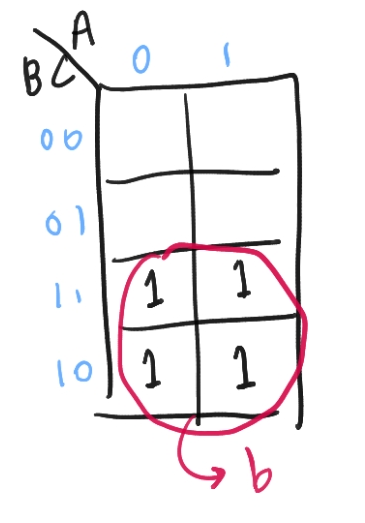 A
BC
0 1
00
01
11 1 1
10 1 1
b